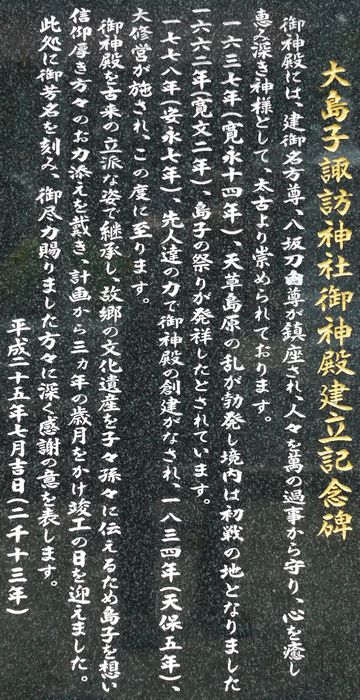 大島子諏訪神社御神殿建立記念碑
御神殿には、建御名方尊、八坂刀自尊が鎮座され、人々を萬の過事から守り、心を癒し
恵み深き神様として、太古より崇められております。
一六三七年(寛永十四年)、天草島原の乱が勃発し境内は初戦の地となりました
一六六二年(寛文二年)、島子の祭りが発祥したとされています。
一七七八年(安永七年)、先人達の力で御神殿の創建がなされ、一八三四年(天保五年)、
大修営が施され、この度に至ります。
御神殿を古来の立派な姿で継承し、故郷の文化遺産を子々孫々に伝えるため島子を想い
信仰厚き方々のお力添えを戴き、計画から三ヵ年の歳月をかけ竣工の日を迎えました。
此処に御芳名を刻み、御尽力賜りました方々に深く感謝の意を表します。
平成二十五年七月吉日(二千十三年)